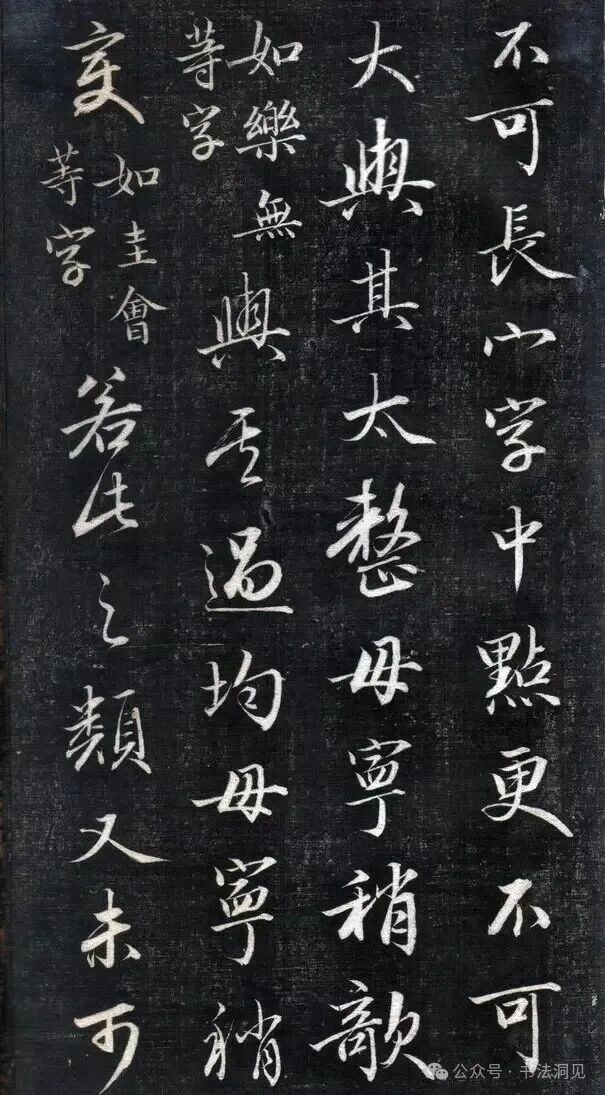 不可長宀字中點更不可
大與其太整毋寧稍欹
如樂無
等字
與其過均毋寧稍
變
如圭會
等字
若此之類又未可
公众号·书法洞见